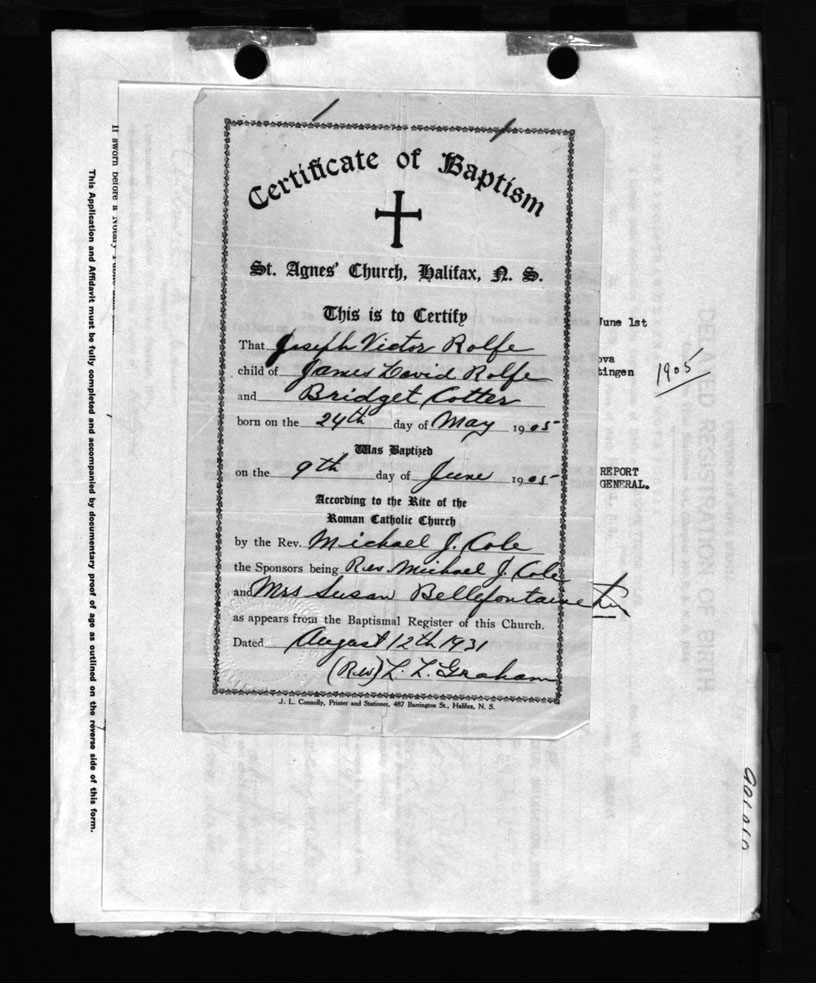 Certificate of Baptism
St. Agnes' Church, Halifax, N. S.
This is to Certify
That Joseph Victor Rolfe
child of James David Rolfe
and Bridget Cotter
born on the 24th day of May 1905
Was Baptized
on the 9th day of June 1905
According to the Rite of the
Roman Catholic Church
by the Rev. Michael J. Cole
the Sponsors being Rev. Michael J. Cole
and Mrs Susan Bellefontaine
as appears from the Baptismal Register of this Church.
Dated August 12th 1931
(Rev) L. L. Graham
J. L. Connolly, Printer and Stationer, 487 Barrington St., Halifax, N. S.
June 1st
ova
tingen
1905
REPORT
GENERAL.
If sworn before a Notary Public
This Application and Affidavit must be fully completed and accompanied by documentary proof of age as outlined on the reverse side of this form.
DELAYED REGISTRATION OF BIRTH